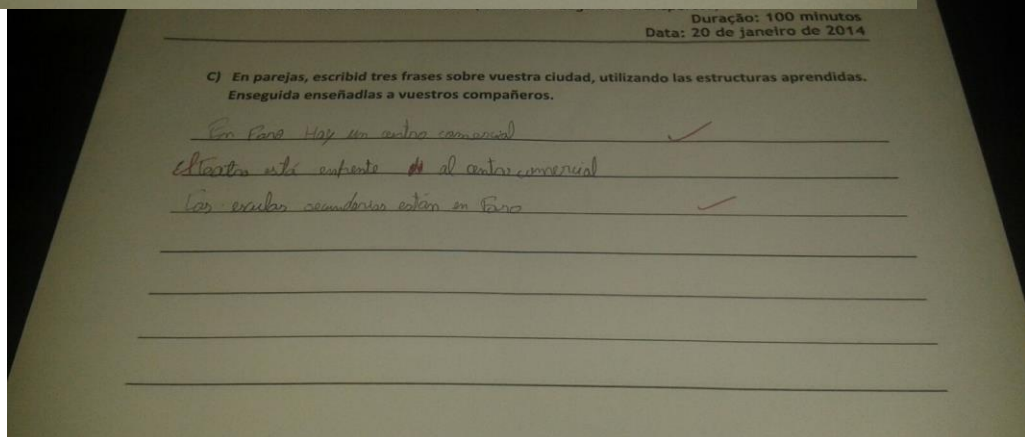 Duração: 100 minutos
Data: 20 de janeiro de 2014
C) En parejas, escribid tres frases sobre vuestra ciudad, utilizando las estructuras aprendidas.
Enseguida enseñadlas a vuestros compañeros.
En Faro Hay un centro comercial
El teatro está enfrente al centro comercial
Las esculas secundarias están en Faro